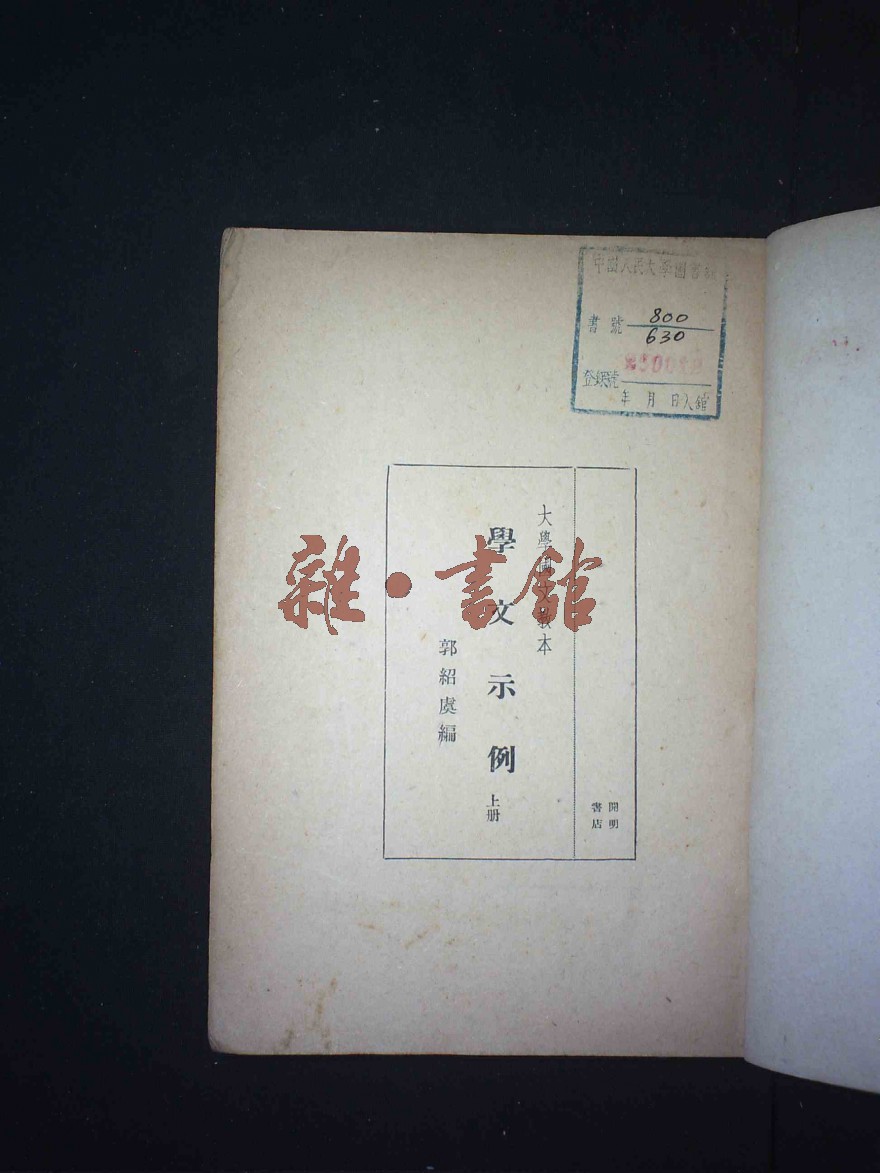 中國人民大學圖書館
書號 800
630
登錄號
年 月 日入館
開明
書店
大學國文教本
學文示例
上册
郭紹虞編
雜·書館